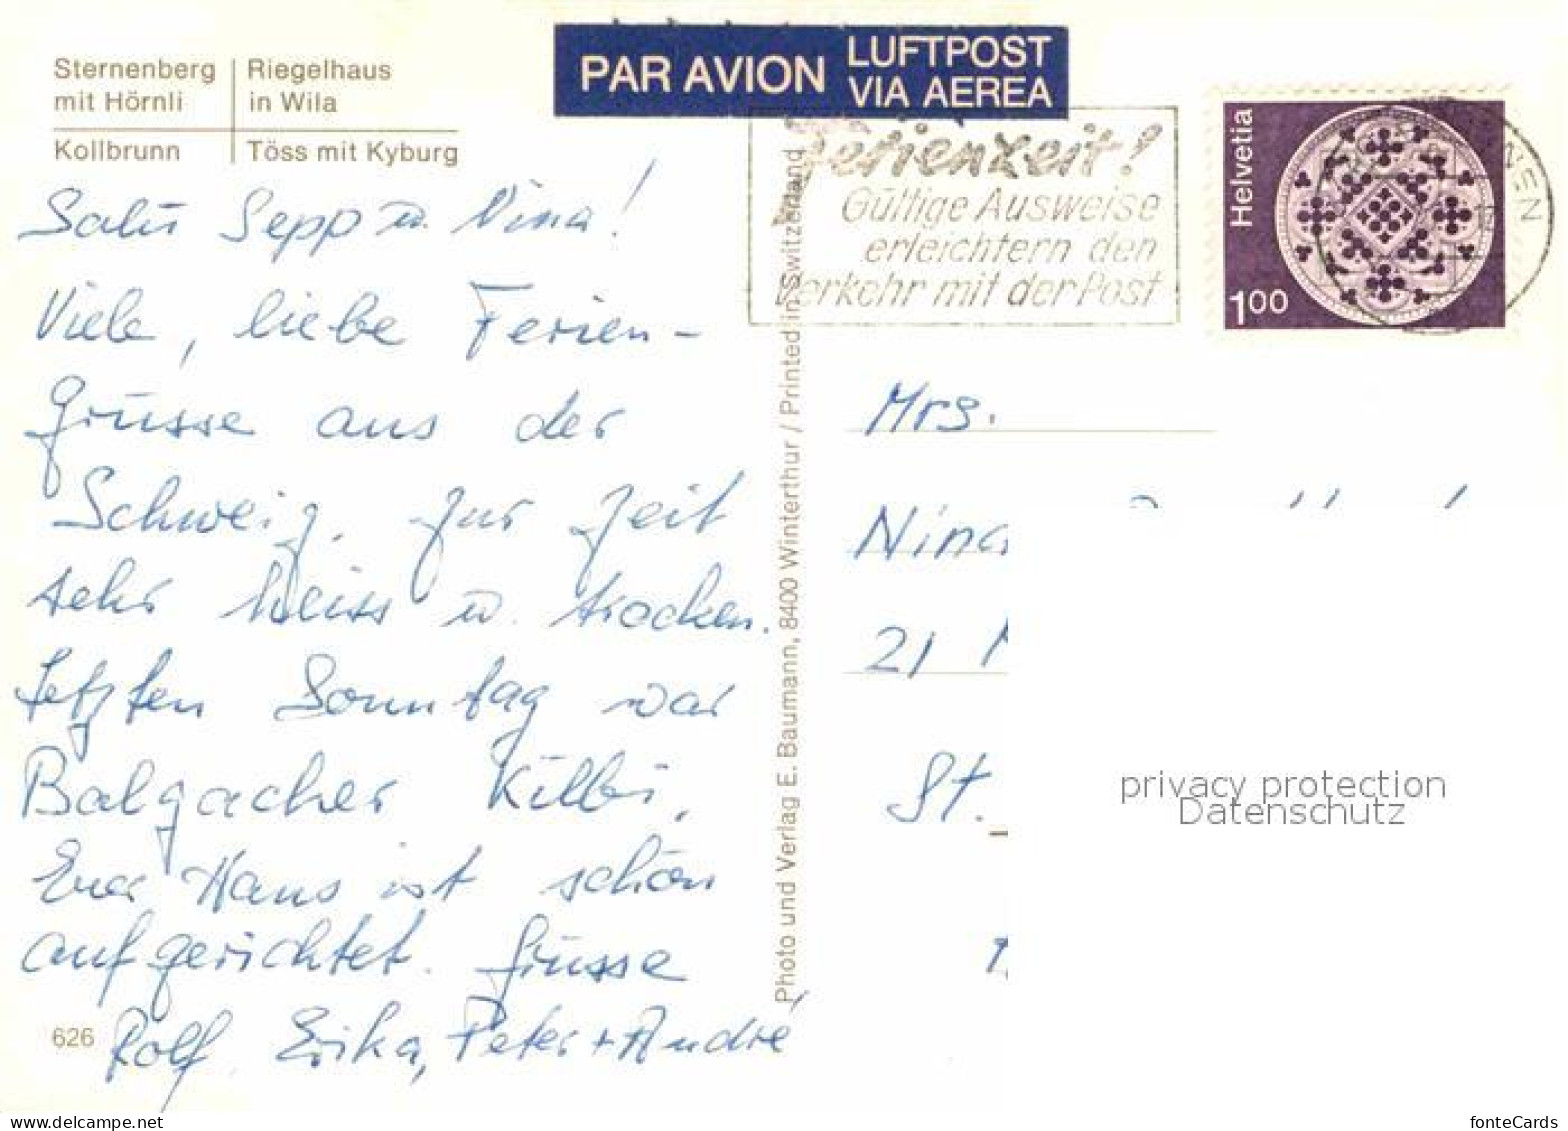 PAR AVION LUFTPOST
VIA AEREA
Sternenberg
mit Hörnli
Riegelhaus
in Wila
Kollbrunn
Töss mit Kyburg
Ferienzeit!
Gültige Ausweise
erleichtern den
Verkehr mit der Post
Helvetia
100
NEN
Salü Sepp u. Nina!
Viele, liebe Ferien-
Grüsse aus der
Schweiz. Zur Zeit
sehr heiss u. trocken.
Letzten Sonntag war
Balgacher Kilbi.
Euer Haus ist schön
aufgerichtet. Grüsse
Rolf, Erika, Peter + André
626
Photo und Verlag E. Baumann, 8400 Winterthur / Printed in Switzerland
Mrs.
Nina
21
St.
privacy protection
Datenschutz
fonteCards